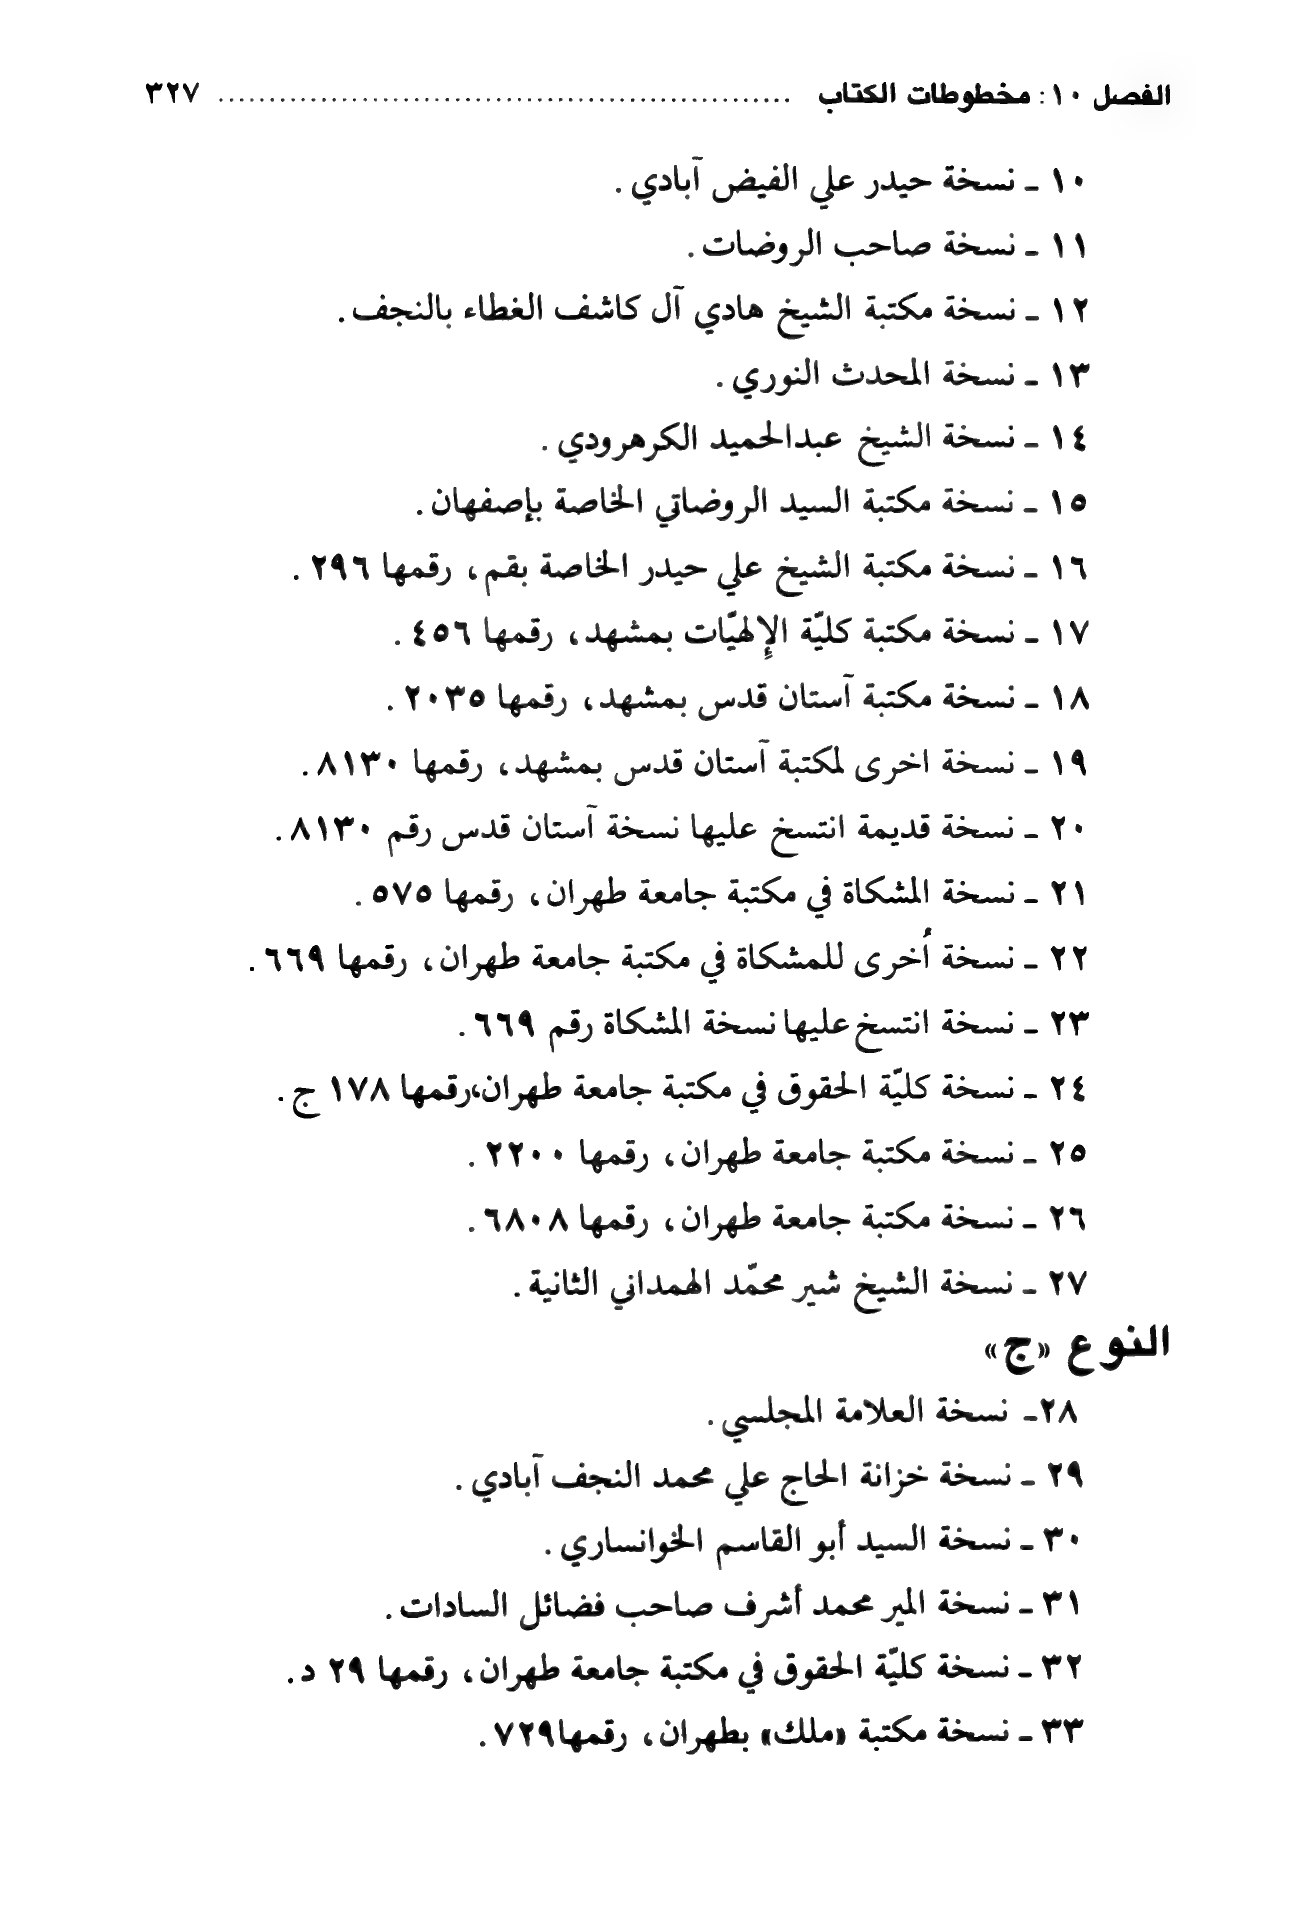 الفصل ١٠: مخطوطات الكتاب ........................................................ ٣٢٧
١٠ ـ نسخة حيدر علي الفيض آبادي.
١١ ـ نسخة صاحب الروضات.
١٢ ـ نسخة مكتبة الشيخ هادي آل كاشف الغطاء بالنجف.
١٣ ـ نسخة المحدث النوري.
١٤ ـ نسخة الشيخ عبدالحميد الكرهرودي.
١٥ ـ نسخة مكتبة السيد الروضاتي الخاصة بإصفهان.
١٦ ـ نسخة مكتبة الشيخ علي حيدر الخاصة بقم، رقمها ٢٩٦.
١٧ ـ نسخة مكتبة كليّة الإلهيّات بمشهد، رقمها ٤٥٦.
١٨ ـ نسخة مكتبة آستان قدس بمشهد، رقمها ٢٠٣٥.
١٩ ـ نسخة اخرى لمكتبة آستان قدس بمشهد، رقمها ٨١٣٠.
٢٠ ـ نسخة قديمة انتسخ عليها نسخة آستان قدس رقم ٨١٣٠.
٢١ ـ نسخة المشكاة في مكتبة جامعة طهران، رقمها ٥٧٥.
٢٢ ـ نسخة أُخرى للمشكاة في مكتبة جامعة طهران، رقمها ٦٦٩.
٢٣ ـ نسخة انتسخ عليها نسخة المشكاة رقم ٦٦٩.
٢٤ ـ نسخة كليّة الحقوق في مكتبة جامعة طهران،رقمها ١٧٨ ج.
٢٥ ـ نسخة مكتبة جامعة طهران، رقمها ٢٢٠٠.
٢٦ ـ نسخة مكتبة جامعة طهران، رقمها ٦٨٠٨.
٢٧ ـ نسخة الشيخ شير محمّد الهمداني الثانية.
النوع «ج»
٢٨ـ نسخة العلامة المجلسي.
٢٩ ـ نسخة خزانة الحاج علي محمد النجف آبادي.
٣٠ ـ نسخة السيد أبو القاسم الخوانساري.
٣١ ـ نسخة المير محمد أشرف صاحب فضائل السادات.
٣٢ ـ نسخة كليّة الحقوق في مكتبة جامعة طهران، رقمها ٢٩ د.
٣٣ ـ نسخة مكتبة «ملك» بطهران، رقمها٧٢٩.